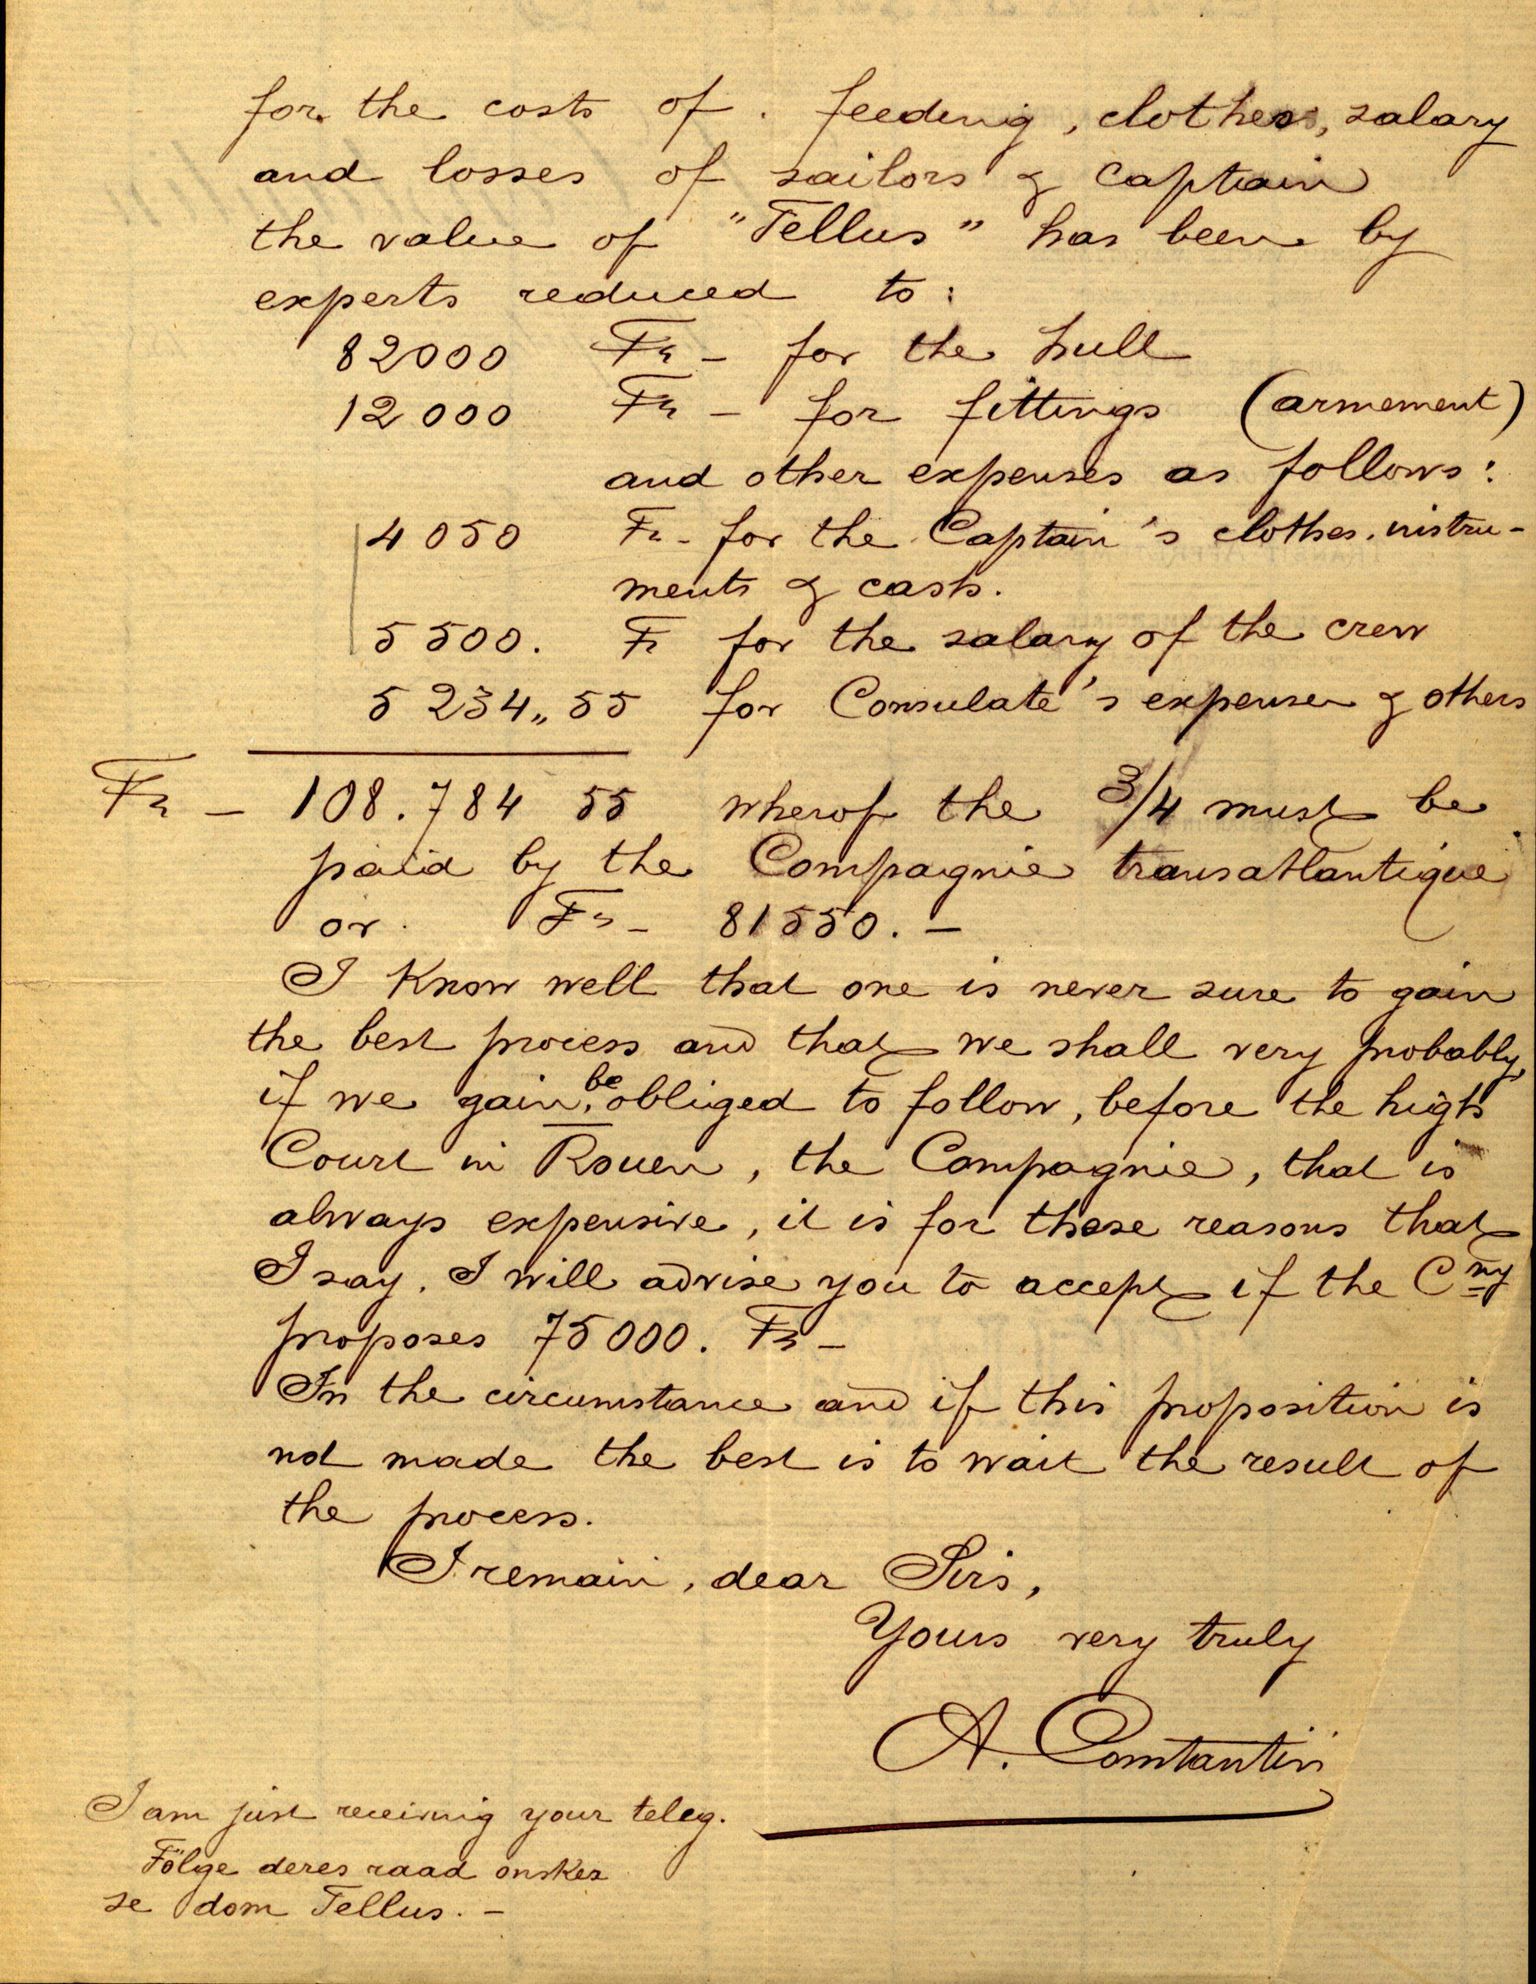 for the costs of. feeding, clothes, salary
and losses of sailors & Captain
the value of "Tellus" has been by
experts reduced to:
82000 Fr - for the hull
12000 Fr - for fittings (armement)
and other expenses as follows:
4050 Fr - for the Captain's clothes. instru-
ments & cash.
5500. Fr for the salary of the crew
5234,,55 for Consulate's expenses & others
Fr - 108.784 55 wherof the 3/4 must be
paid by the Compagnie transatlantique
or Fr - 81550. -
I know well that one is never sure to gain
the best process and that we shall very probably,
if we gain, be obliged to follow, before the high
Court in Rouen, the Compagnie, that is
always expensive, it is for these reasons that
I say. I will advise you to accept if the Cny
proposes 75000. Fr -
In the circumstance and if this proposition is
not made the best is to wait the result of
the process.
I remain, dear Sirs,
Yours very truly
A. Constantin
I am just receiving your teleg.
Fölge deres raad onsker
se dom Tellus. -